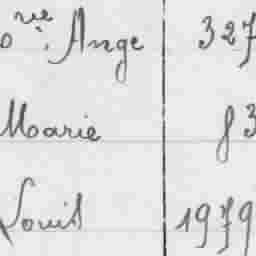 ve. Ange 327
Marie 83
Louis 1979